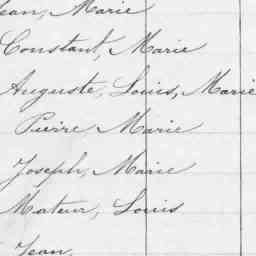 Jean, Marie
Constant, Marie
Auguste, Louis, Marie
Pierre Marie
Joseph, Marie
Mateur, Louis
Jean,